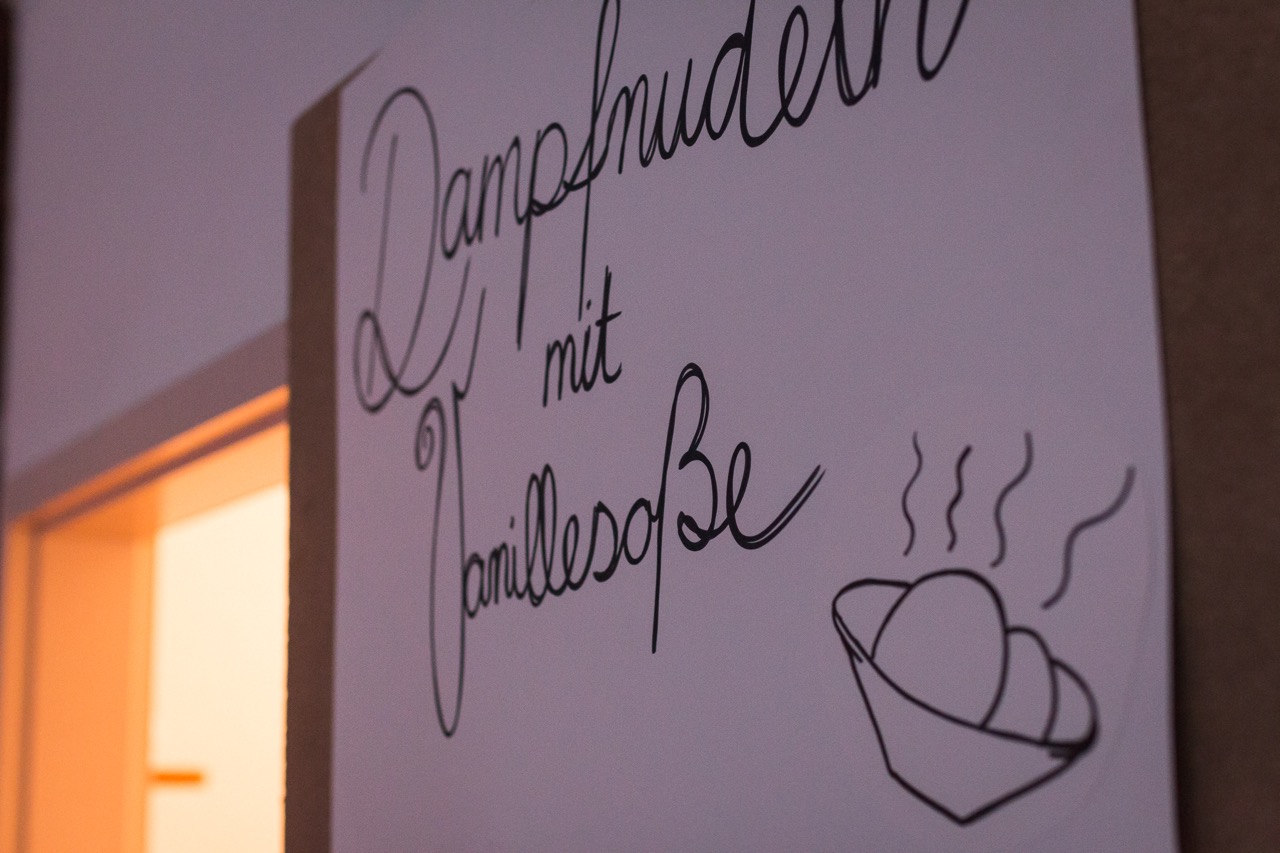 Dampfnudeln
mit
Vanillesoße